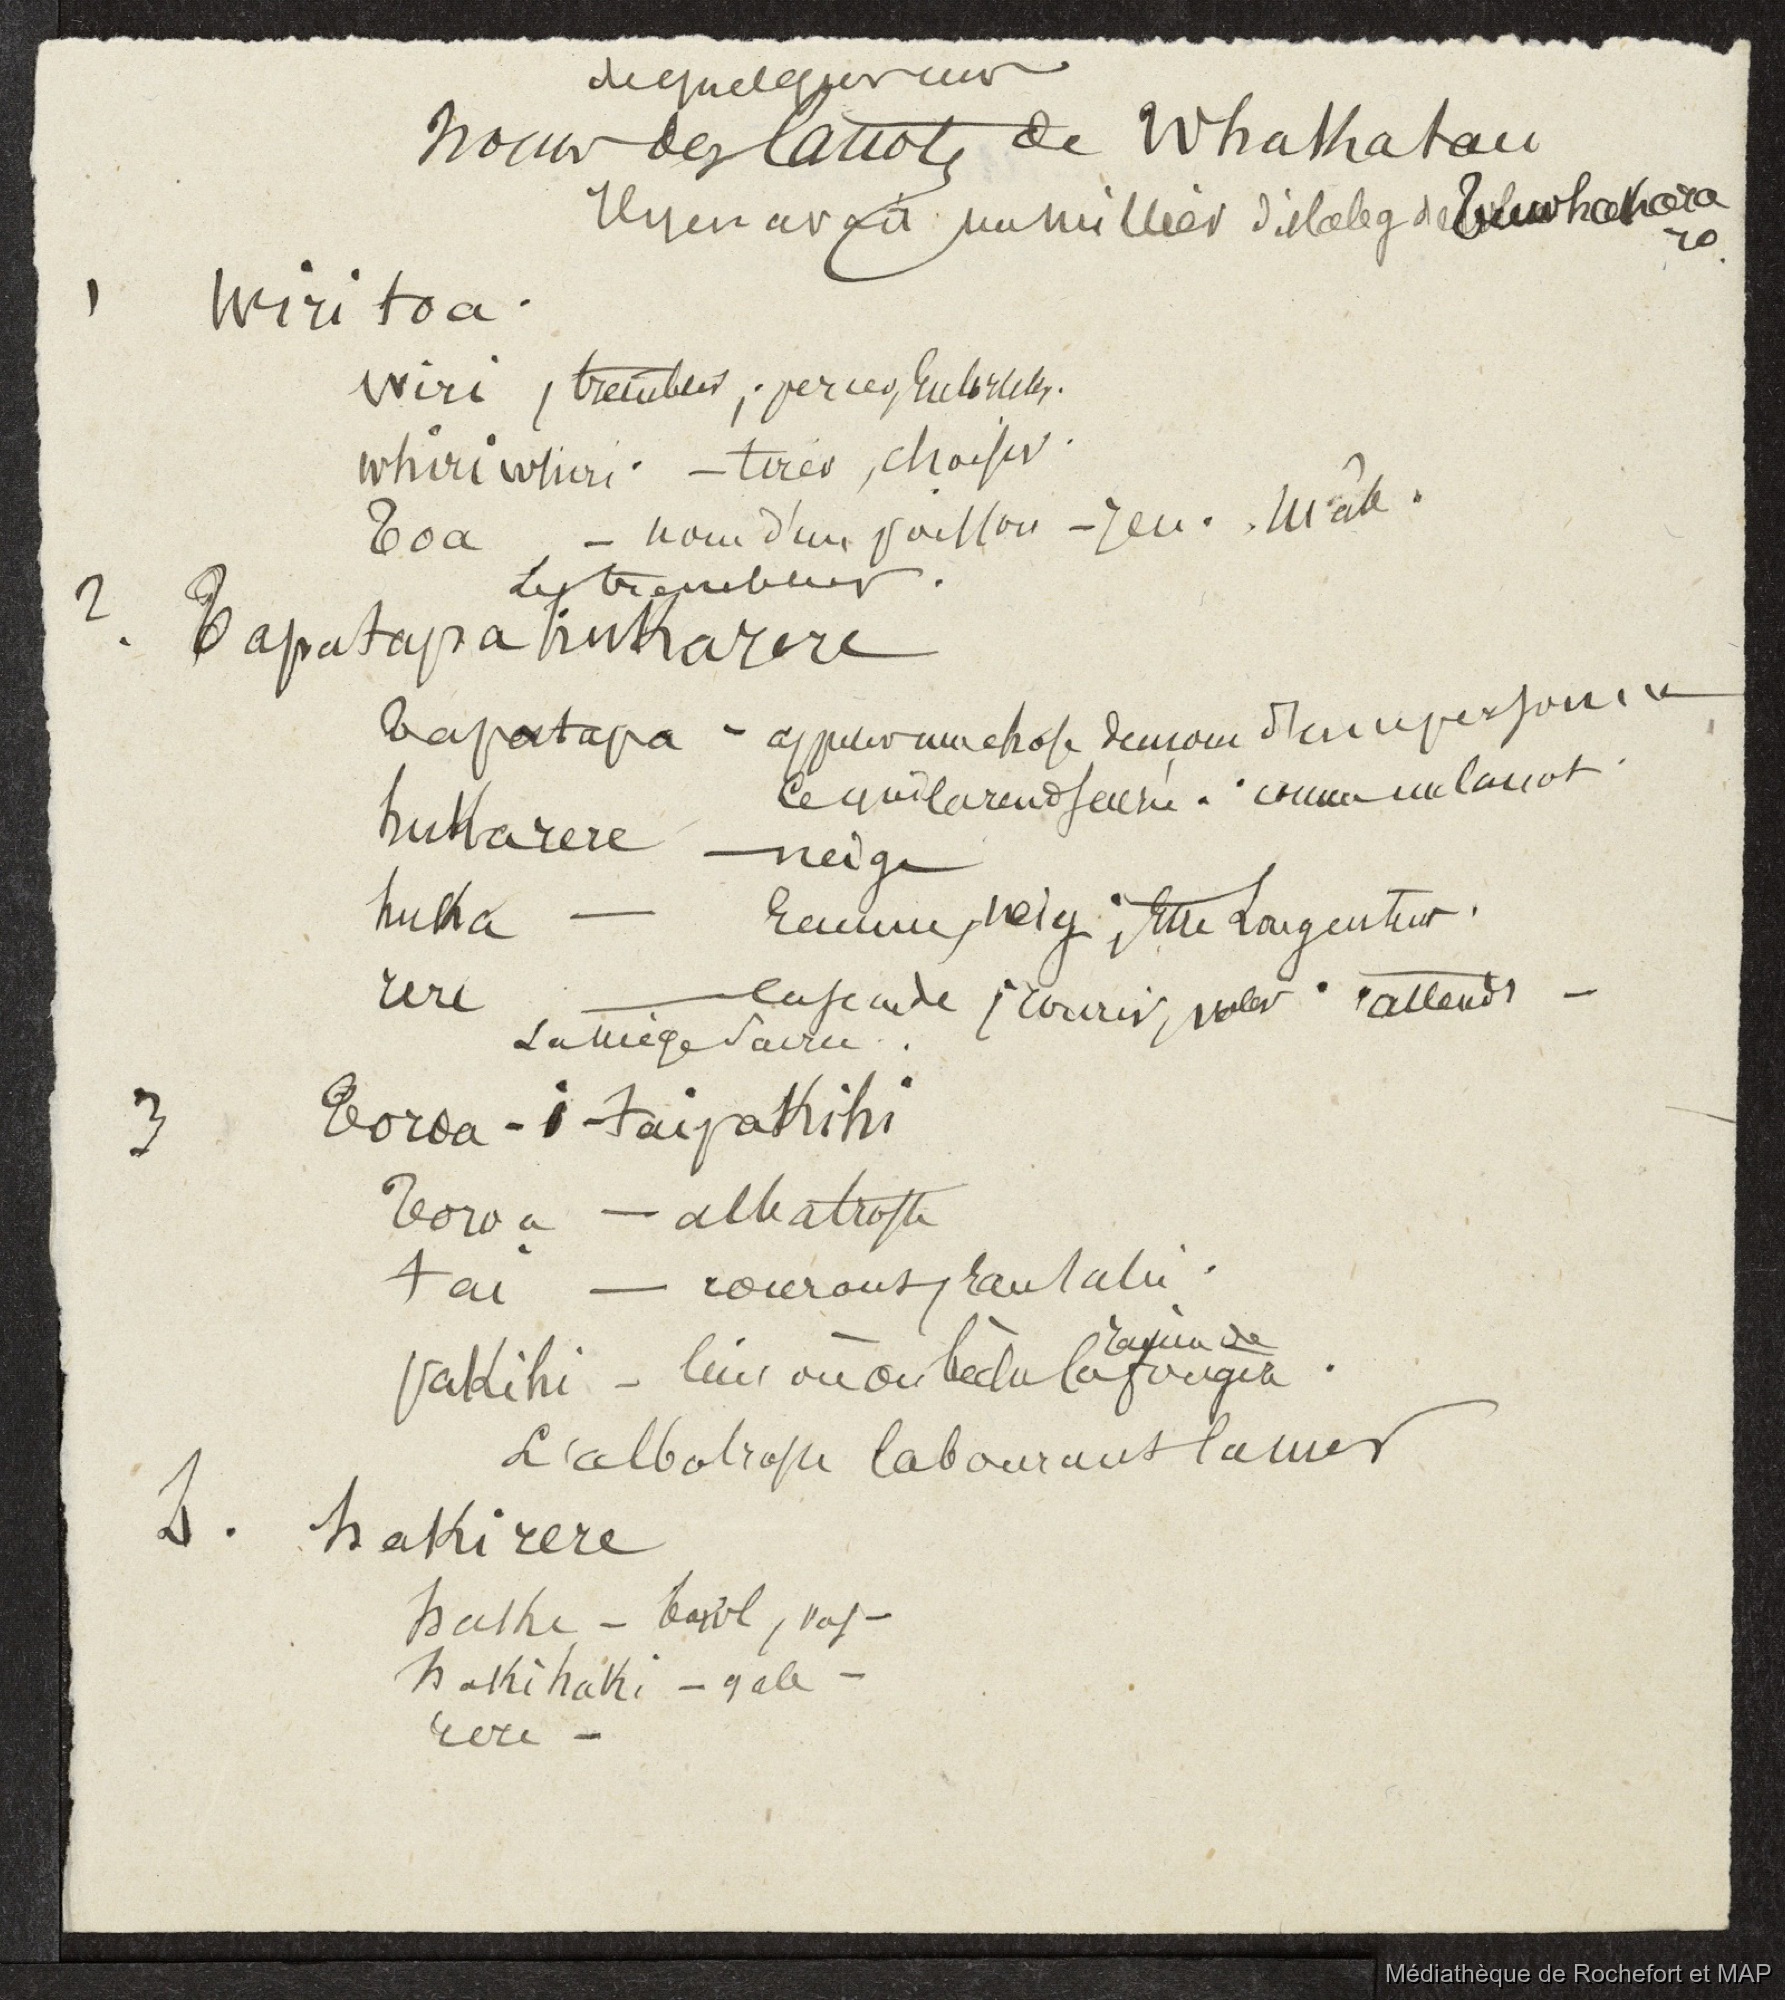 de quelques uns
noms des canots de Whakatau
Il y en avait un millier de
1 Wiri toa.
wiri , trembler ; percer,
whiriwhiri . – tirer , choisir .
Toa , – nom d'un poisson – jeu . . Mâle .
Les trembleurs .
2. Tapatapahukarere
Tapatapa – appeler une chose du nom d'une personne
ce qui la rend sacrée . comme un canot .
hukarere – neige
huka – Ecume, neige ; être Longenteur .
rere – cascade ; courir, voler . attends –
La neige sacrée .
3 Toroa - i - taipakihi
Toroa – albatrosse
tai – courant, Eau salée .
racine de
pakihi – lieu où on bèche la fougère .
L'albatrosse labourant la mer
4. hakirere
hakihaki – gale –
rere –
Médiathèque de Rochefort et MAP